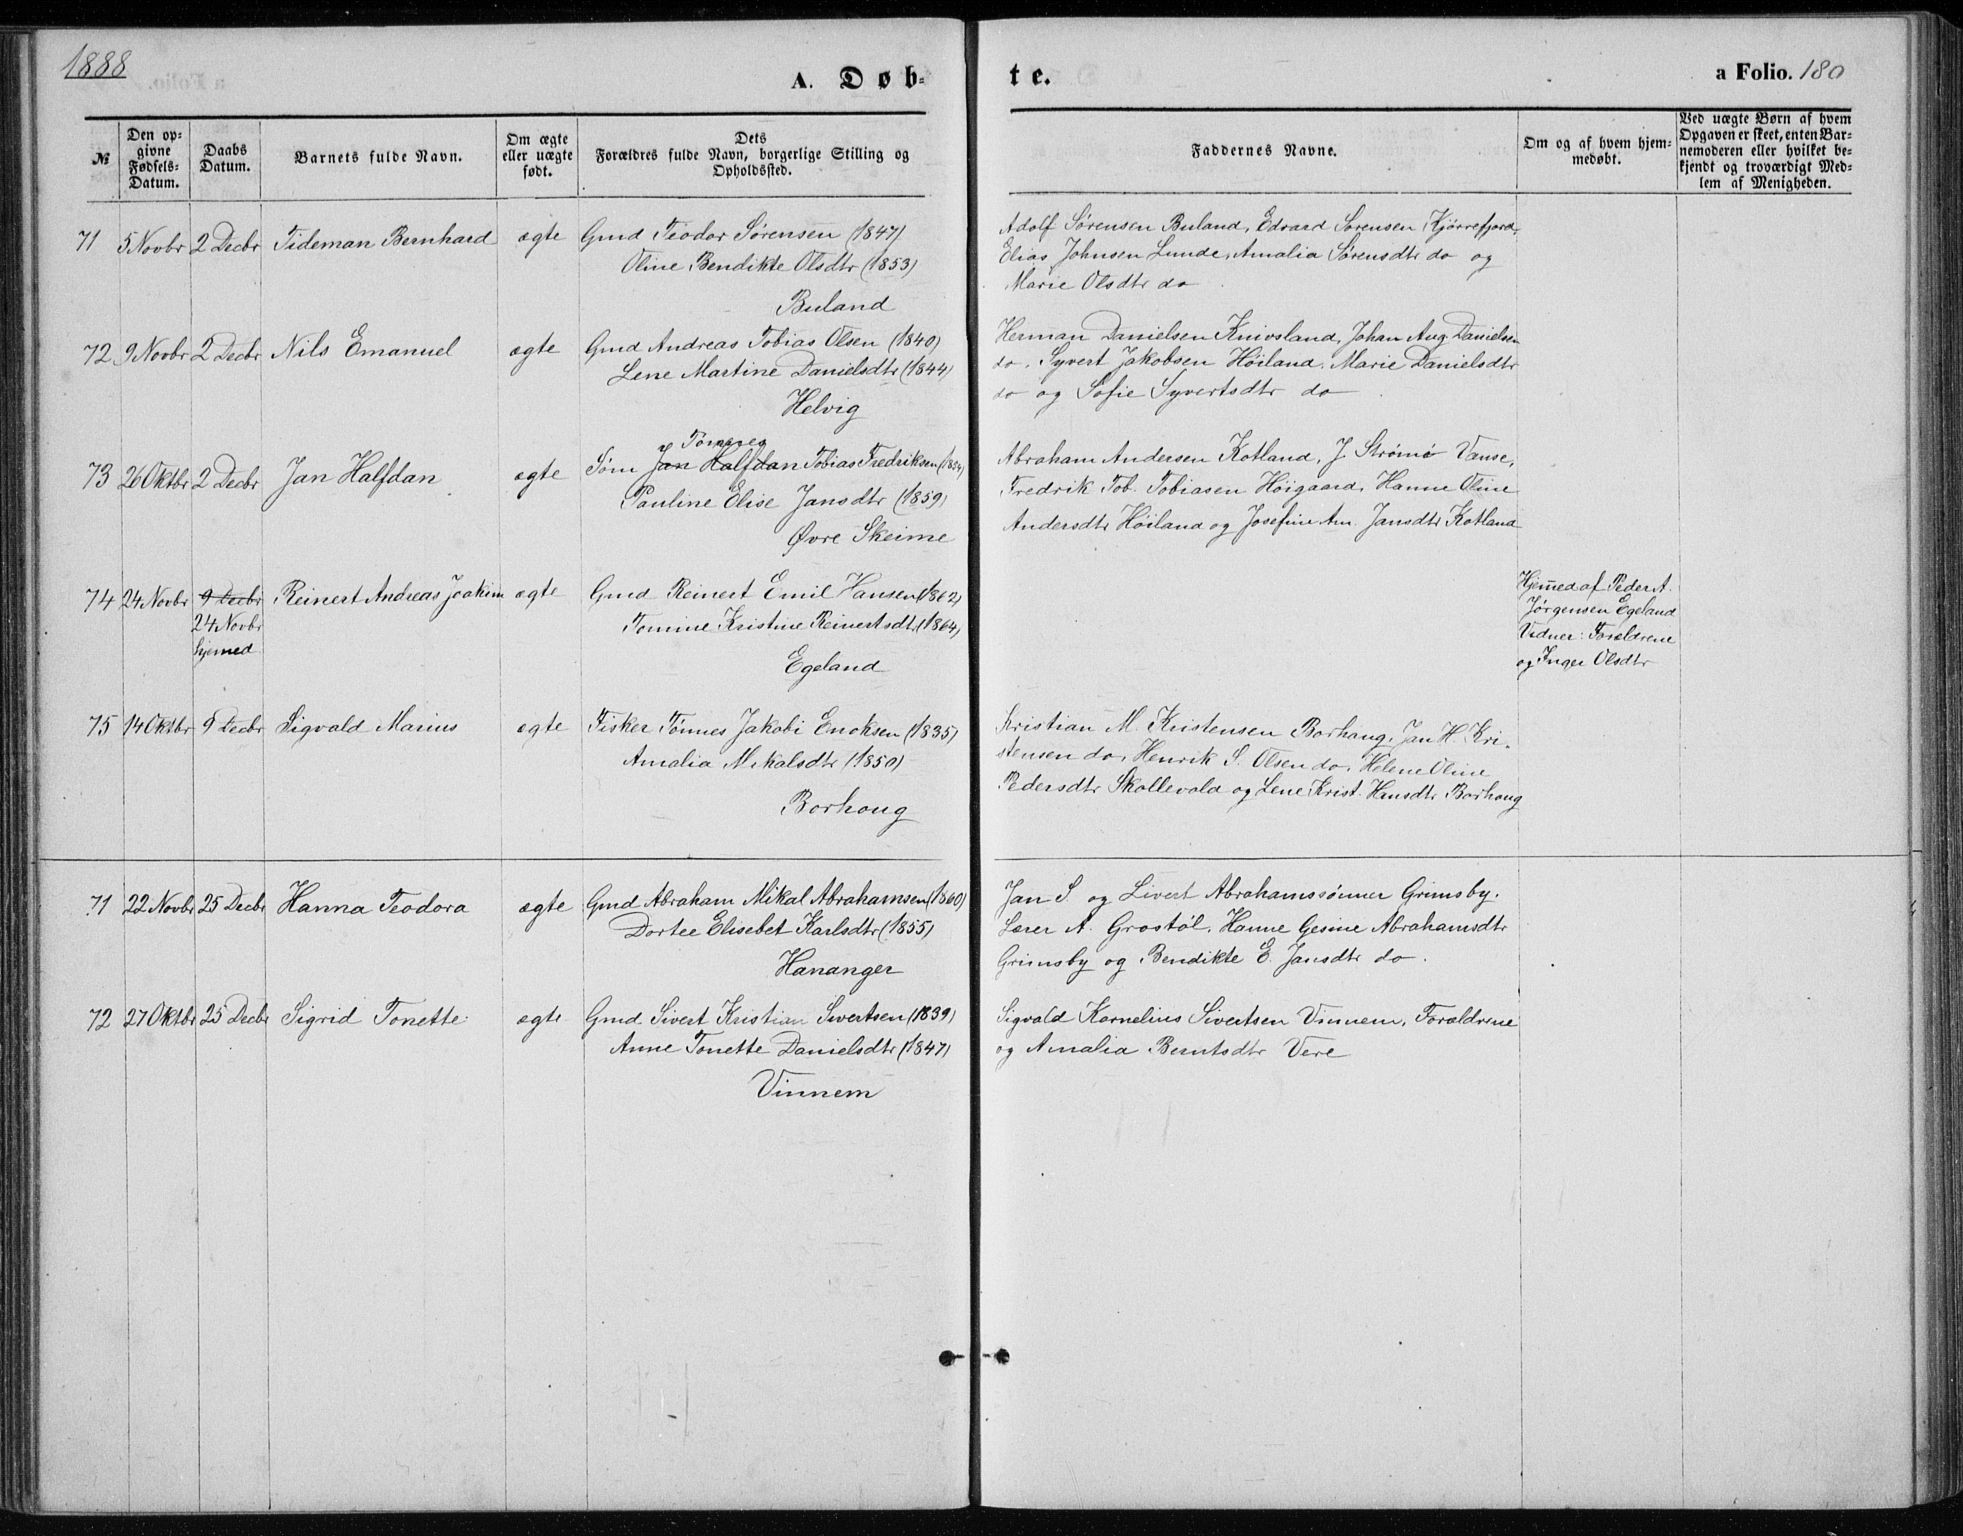 1888
A. Døb-
te.
a Folio. 180
№
Den op-
givne
Fødsels-
Datum.
Daabs
Datum.
Barnets fulde Navn.
Om ægte
eller uægte
født.
Dets
Forældres fulde Navn, borgerlige Stilling og
Opholdssted.
Faddernes Navne.
Om og af hvem hjem-
medøbt.
Ved uægte Børn af hvem
Opgaven er skeet, enten Bar-
nemoderen eller hvilket be-
kjendt og troværdigt Med-
lem af Menigheden.
71 5 Novbr 2 Decbr Tideman Bernhard ægte Gmd Teodor Sørensen (1847)
Oline Bendikte Olsdtr (1853)
Buland
Adolf Sørensen Buland, Edvard Sørensen Kjørrefjord,
Elias Johnsen Lunde, Amalia Sørensdtr do og
Marie Olsdtr do
72 9 Novbr 2 Decbr Nils Emanuel ægte Gmd Andreas Tobias Olsen (1840)
Lene Martine Danielsdtr (1844)
Helvig
Herman Danielsen Knivsland, Johan Aug. Danielsen
do, Syvert Jakobsen Høiland, Marie Danielsdtr
do og Sofie Syvertsdtr do
73 26 Oktbr 2 Decbr Jan Halfdan ægte Søm Jan Halfdan Tobias Fredriksen (1854)
Pauline Elise Jansdtr (1859)
Øvre Skeime
Abraham Andersen Kotland, J. Strømø Vanse,
Fredrik Tob. Tobiasen Høigaard, Hanne Oline
Andersdtr Høiland og Josefine An. Jansdtr Kotland
74 24 Novbr 9 Decbr Reinert Andreas Joakim ægte Gmd Reinert Emil Hansen (1862)
24 Novbr
hjemmed
Tomine Kristine Reinertsdtr (1864)
Egeland
Hjemmed af Peder A.
Jørgensen Egeland
Vidner: Forældrene
og Inger Olsdtr
75 14 Oktbr 9 Decbr Sigvald Marius ægte Fisker Tønnes Jakobi Enoksen (1835)
Amalia Mikalsdtr (1850)
Borhoug
Kristian M. Kristensen Borhaug, Jan H. Kri-
stensen do, Henrik S. Olsen do, Helene Oline
Pedersdtr Skollevold og Lene Krist. Hansdtr Borhaug
71 22 Novbr 25 Decbr Hanna Teodora ægte Gmd Abraham Mikal Abrahamsen (1860)
Dortee Elisebet Karlsdtr (1855)
Hananger
Jan S. og Sivert Abrahamssønner Grimsby.
Lærer A. Grostøl, Hanne Gesine Abrahamsdtr
Grimsby og Bendikte E. Jansdtr do.
72 27 Oktbr 25 Decbr Sigrid Tonette ægte Gmd Sivert Kristian Sivertsen (1839)
Anne Tonette Danielsdtr (1847)
Vinnem
Sigvald Kornelius Sivertsen Vinnem, Forældrene
og Amalia Berntsdtr Vere